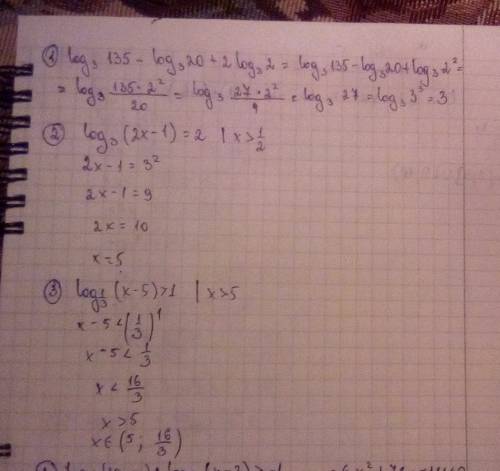 ① log₃ 135 - log₃ 20 + 2 log₃ 2 = log₃ 135 - log₃ 20 + log₃ 2² =
= log₃ (135 · 2²)/20 = log₃ (27 · 2²)/9 = log₃ 27 = log₃ 3³ = 3
② log₃ (2x-1) = 2 | x > 1/2
2x-1 = 3²
2x-1 = 9
2x = 10
x = 5
③ log 1/3 (x-5) > 1 | x > 5
x-5 < (1/3)¹
x-5 < 1/3
x < 16/3
x > 5
x ∈ (5; 16/3)